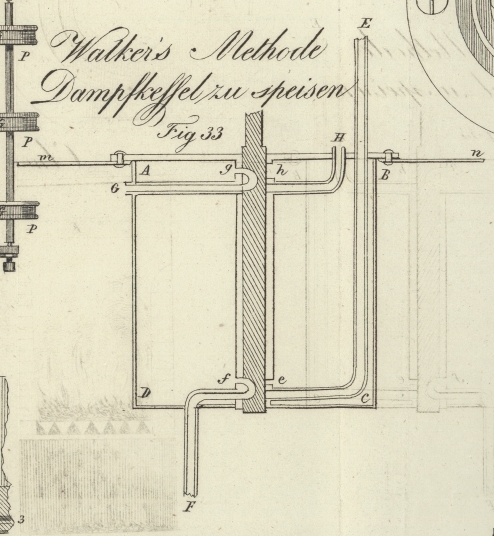 Walker's Methode
Dampfkeſſel zu speisen
Fig 33
E
P
P
P
H
m
n
A
g
h
B
G
f
e
D
C
F
3